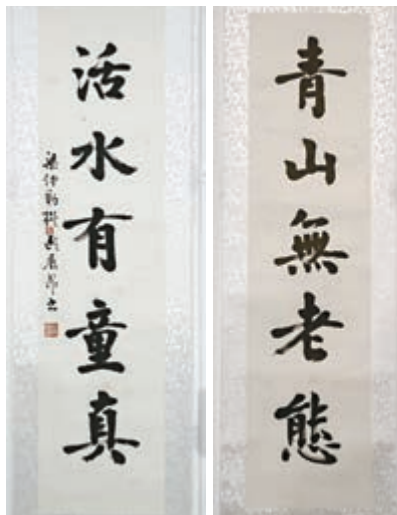 青山無老態
活水有童真